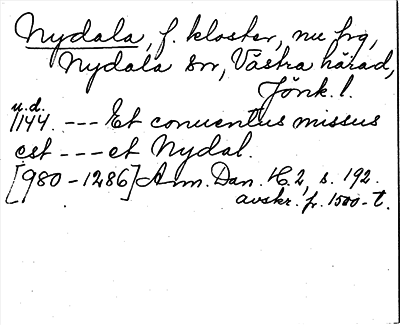 Nydala, f. kloster, nu frg,
Nydala sn, Västra härad,
Jönk. l.
u.d.
1144. --- Et conuentus missus
est --- et Nydal.
[980-1286] Ann. Dan. H. 2, s. 192.
avskr. fr. 1500-t.